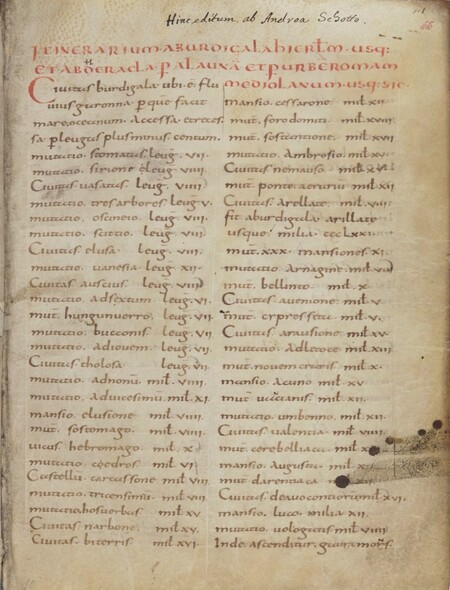 Hinc editum ab Andrea Schotto.
66
ITINERARIUM A BURDIGALA HIERLM · USQ:
ET AB HERACLA P AULAUXĀ ET PURBE ROMAM
Civitas burdigala ubi ē flu
vius garonna p que facit
mare oceanum accessa et reces
sa p leugas plus minus centum.
mutatio stomatas leug̅ · VII ·
mutatio sirione leug̅ VIIII
Civitas vasatas leug̅ VIIII
mutatio tres arbores leug̅ V ·
mutatio oscineio leug̅ VIII
mutatio scittio leug̅ VIII
Civitas elusa leug̅ VIII ·
mutatio vanesia leug̅ XII ·
Civitas auscius leug̅ VIII
mutatio ad sextum leug̅ VI ·
mut̅ hungunverro leug̅ VII
mutatio bucconis leug̅ VII
mutatio ad iovem leug̅ VII
Civitas tholosa leug̅ VII
mutatio ad nonū mil̅ VIIII
mutatio ad vicesimū mil̅ XI
mansio elusione mil̅ VIIII
mut̅ sostomago mil̅ VIIII
vicus hebromago mil̅ X
mutatio cedros mil̅ VI
Castellū carcassone mil̅ VIII
mutatio tricensimū mil̅ VIII
mutatio hosuerbas mil̅ XV
Civitas narbone mil̅ XV
Civitas biterris mil̅ XVI ·
MEDIOLANUM USQ · SIC ·
mansio cessarone mil̅ XII
mut̅ foro domiti mil̅ XVIII
mut̅ sostantione mil̅ XVII
mutatio Ambrosio mil̅ XV
Civitas nemauso mil̅ XV
mut̅ ponte aerariū mil̅ XII
Civitas arellate mil̅ VIII
fit a burdigala arillate
usque milia CCCLXXI
mut̅ XXX · mansiones XI ·
mutatio Arnagine mil̅ VIII
mut̅ bellinto mil̅ X
Civitas avenione mil̅ V ·
mut̅ cypresseta mil̅ V ·
Civitas arausione mil̅ XV
mutatio ad lectoce mil̅ XIII
mut̅ novem craris mil̅ X ·
mansio acuno mil̅ XV
mut̅ vancianis mil̅ XII
mutatio umbenno mil̅ XII ·
Civitas valentia mil̅ VIIII
mut̅ cerebelliaca mil̅
mansio augusta mil̅
mut̅ darentiaca mil̅ XII
Civitas dea vocontiorū mil̅ XVI ·
mansio luco milia XII
mutatio vologatis mil̅ VIIII
Inde ascenditur gaura mons